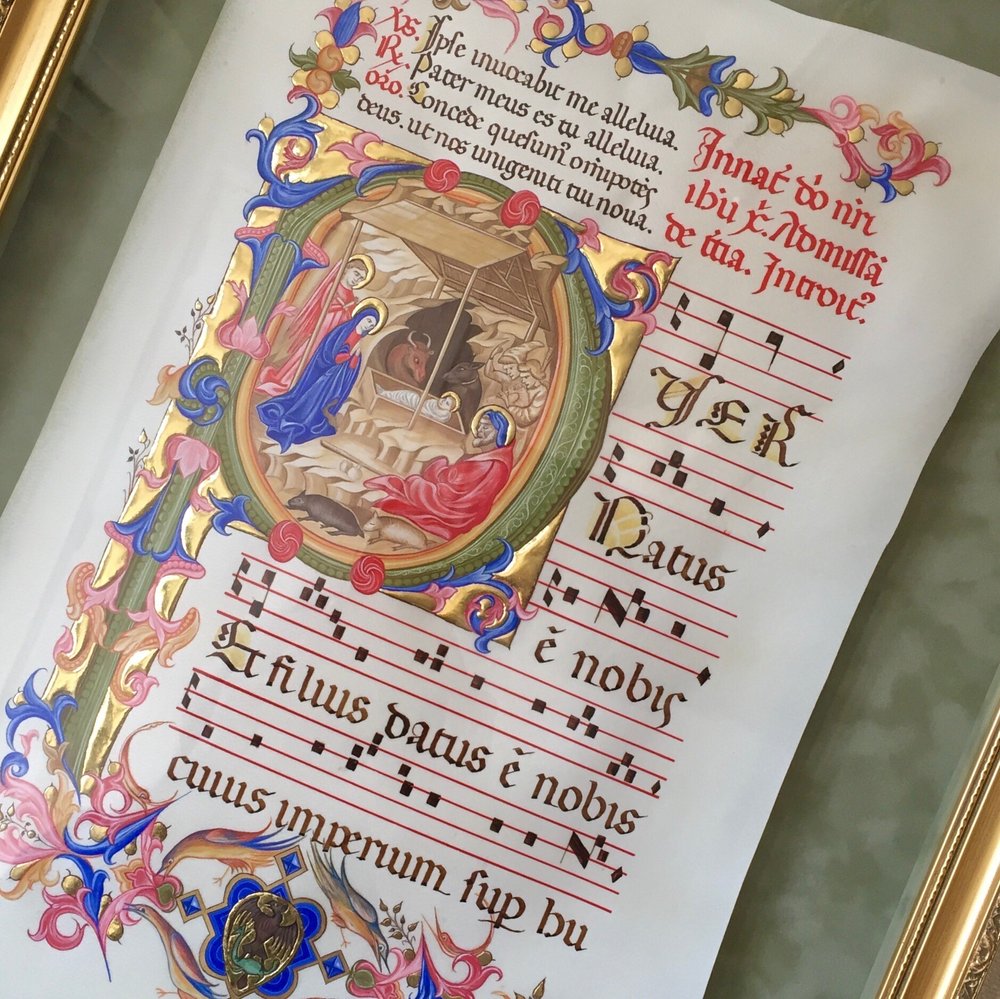 Xs. Ipse invocabit me alleluia.
R/ Pater meus es tu alleluia.
oro. Concede quesum' omipotēs
deus. ut nos unigeniti tui nova.
Innat' do nri
ihu xc. Ad missā
de
Introit'
YER
Natus
ē nobis
Et filius datus ē nobis
cuius imperium sup hu